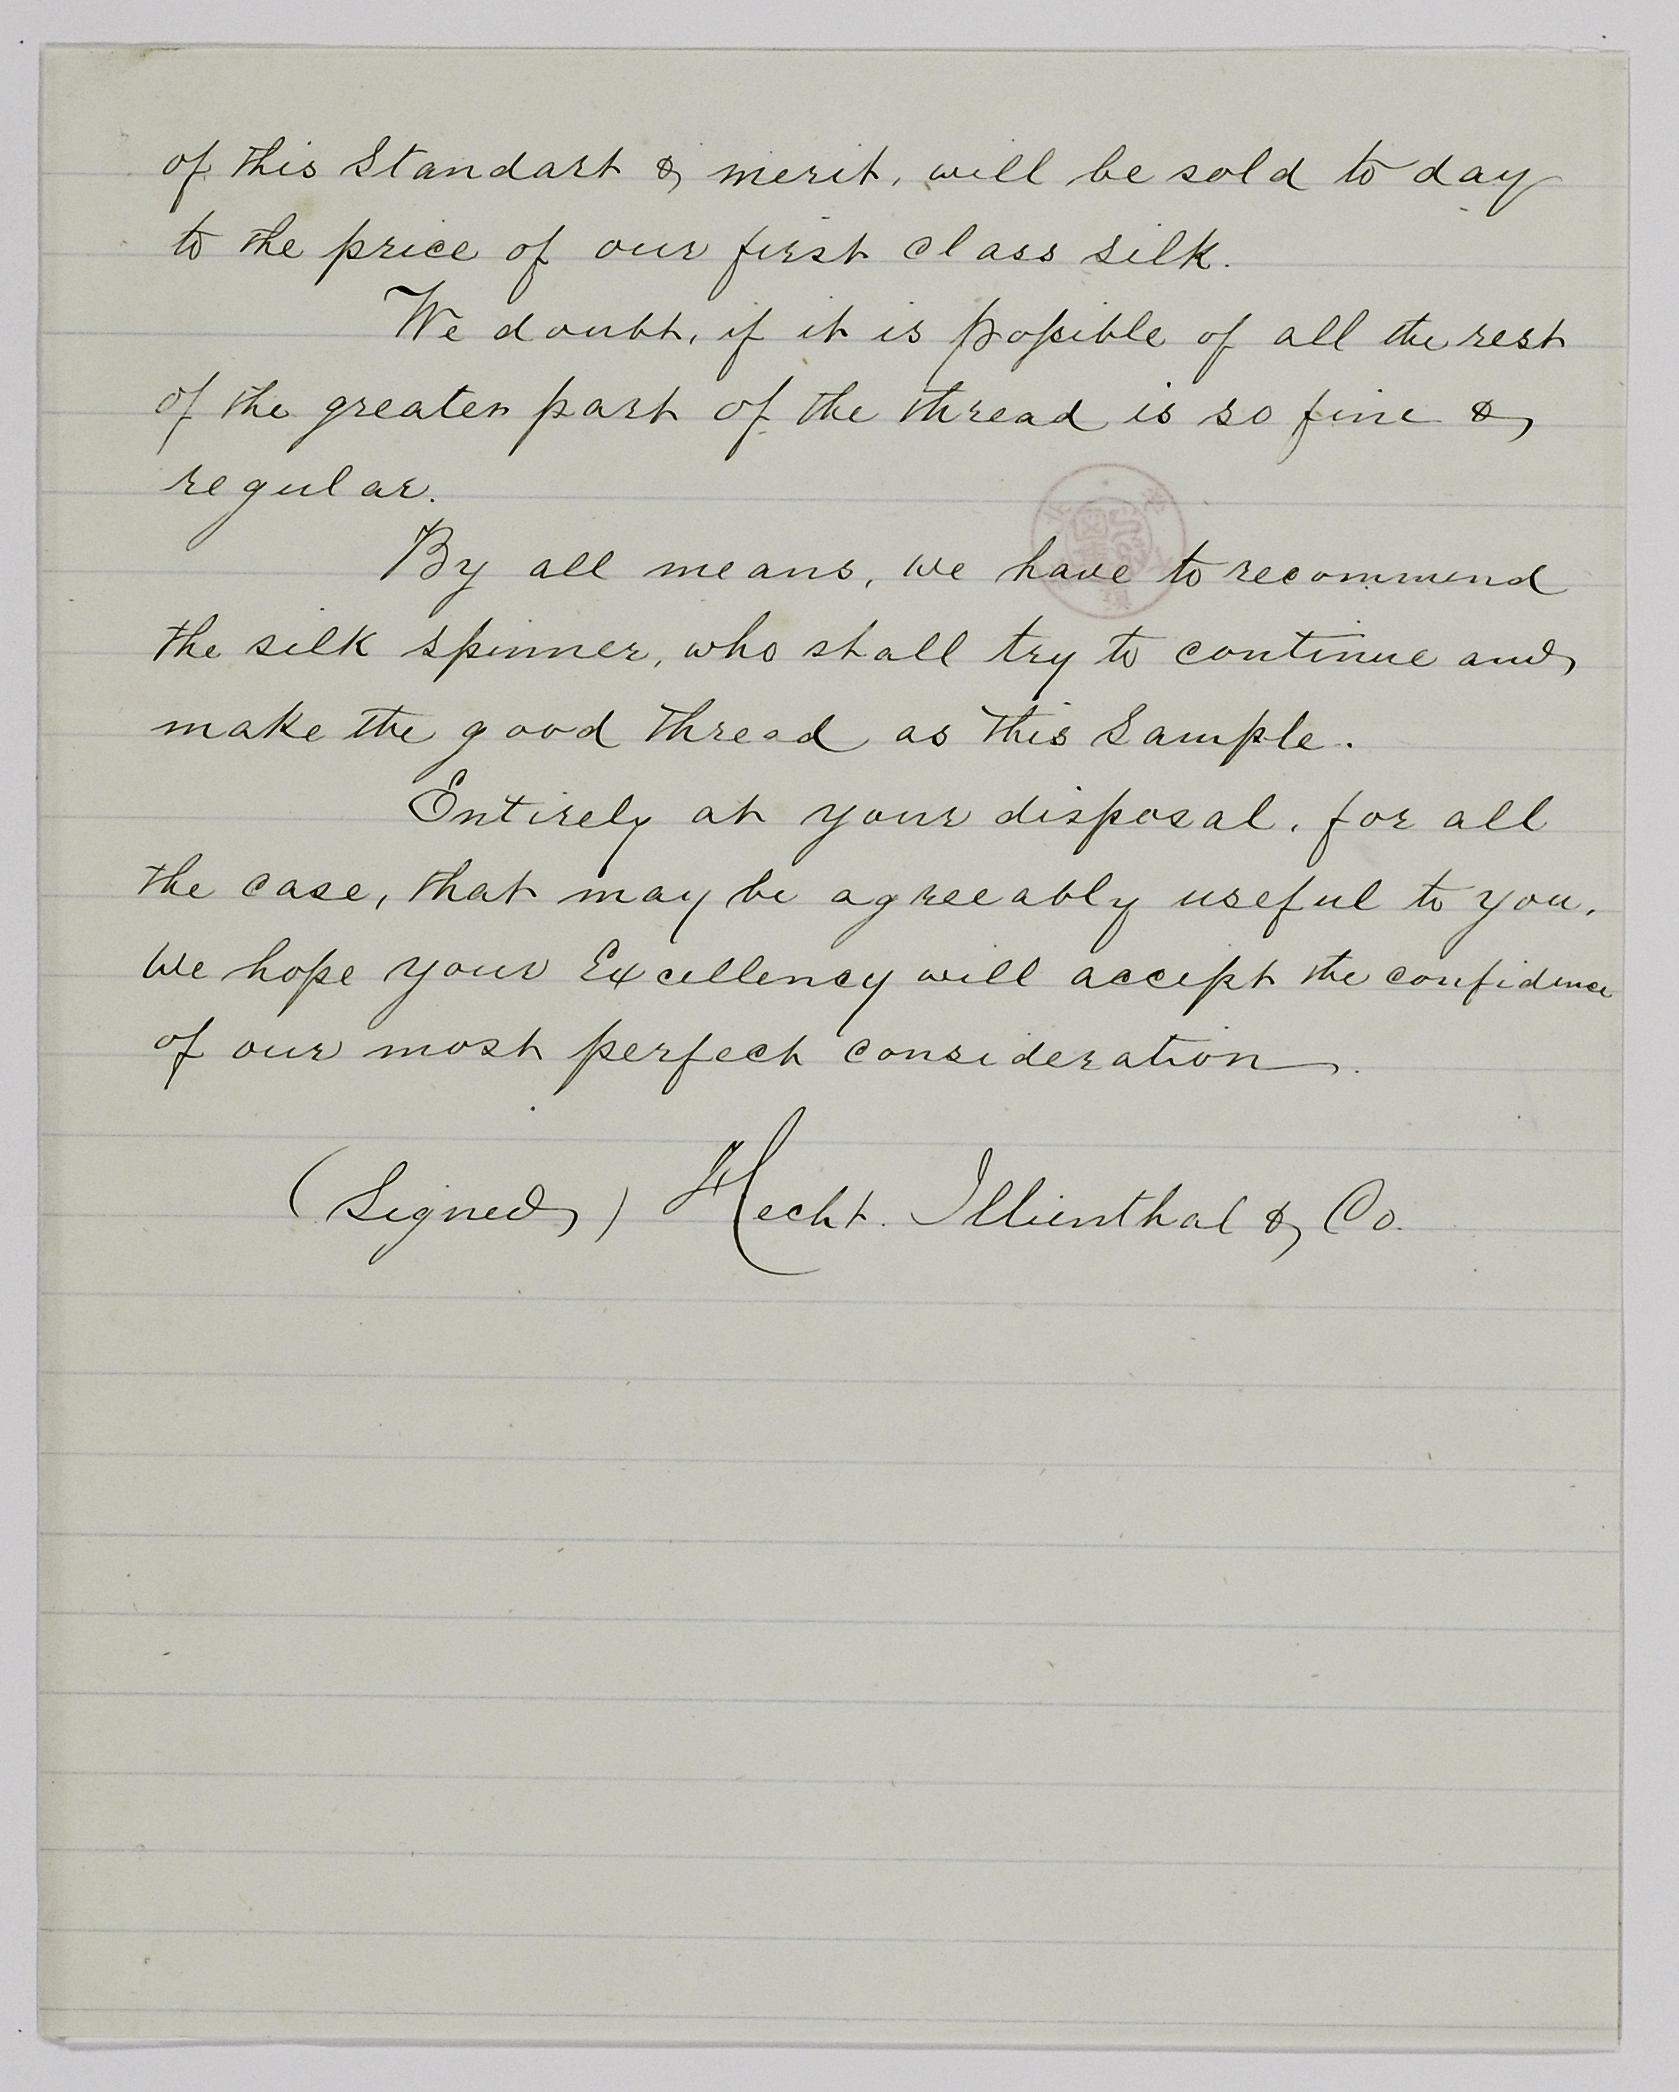 of this Standart & merit, will be sold to day
to the price of our first class silk.
We doubt, if it is possible of all the rest
of the greater part of the thread is so fine &
regular.
By all means, we have to recommend
the silk spinner, who shall try to continue and
make the good thread as this Sample.
Entirely at your disposal, for all
the case, that may be agreeably useful to you.
We hope your Excellency will accept the confidence
of our most perfect consideration.
(Signed) Hecht. Illienthal & Co.